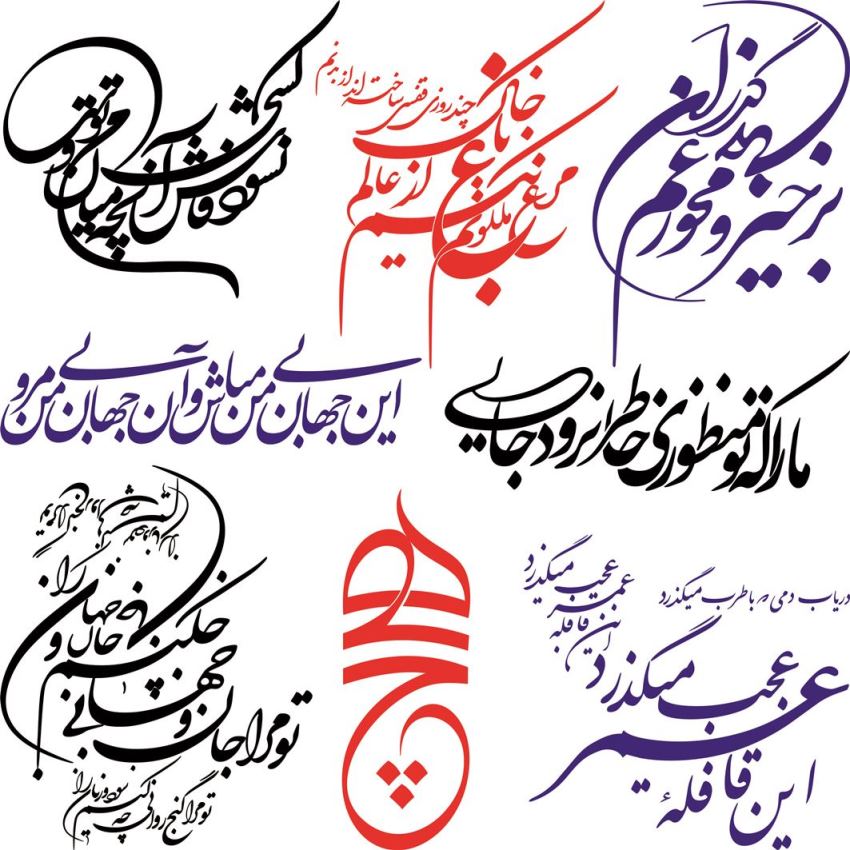 برخیز و مخور غم جهان گذران
مرغ باغ ملکوتم نیم از عالم خاک
چند روزی قفسی ساخته اند از بدنم
نشود فاش کسی آنچه میان من و توست
ما را که تو منظوری خاطر نرود جایی
این جهانی من مباش و آن جهانی من مرو
این قافله عمر عجب میگذرد
دریاب دمی که با طرب میگذرد
این قافلهٔ عمر عجب میگذرد
تو مرا جان و جهانی چه کنم جان و جهان را
تو مرا گنج روانی چه کنم سود و زیان را